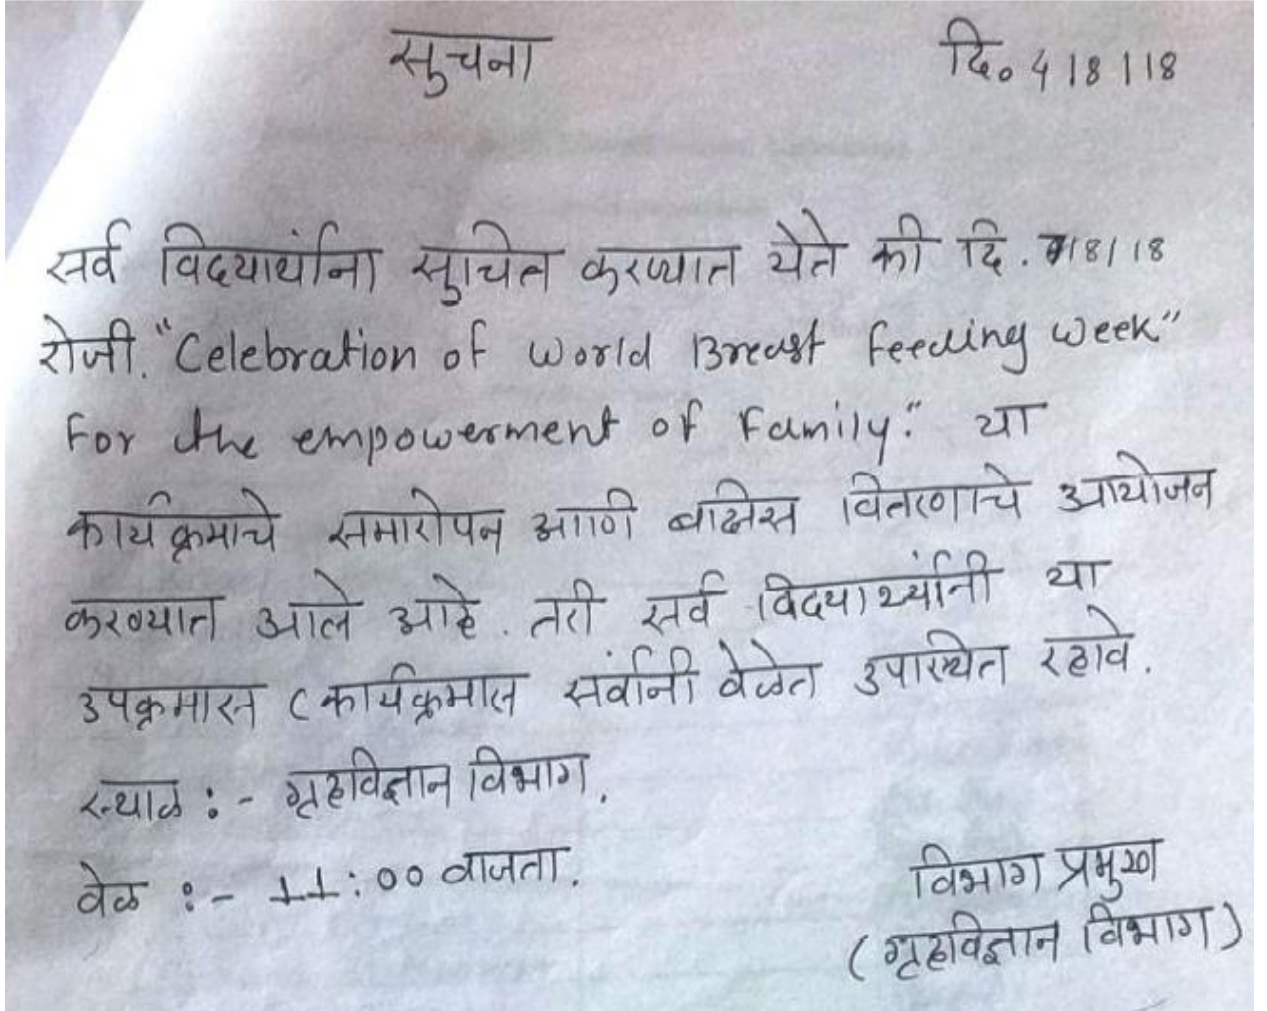 सुचना
दि. 4/8/18
सर्व विदयार्थांना सुचित करण्यात येते की दि. 7/8/18
रोजी. "Celebration of World Breast feeding week"
For the empowerment of Family." या
कार्यक्रमाचे समारोपन आणि बक्षिस वितरणाचे आयोजन
करण्यात आले आहे. तरी सर्व विदयार्थ्यांनी या
उपक्रमास (कार्यक्रमास सर्वांनी वेळेत उपास्थित रहावे.
स्थाळ :- गृहविज्ञान विभाग.
वेळ :- 11:00 वाजता.
विभाग प्रमुख
(गृहविज्ञान विभाग)